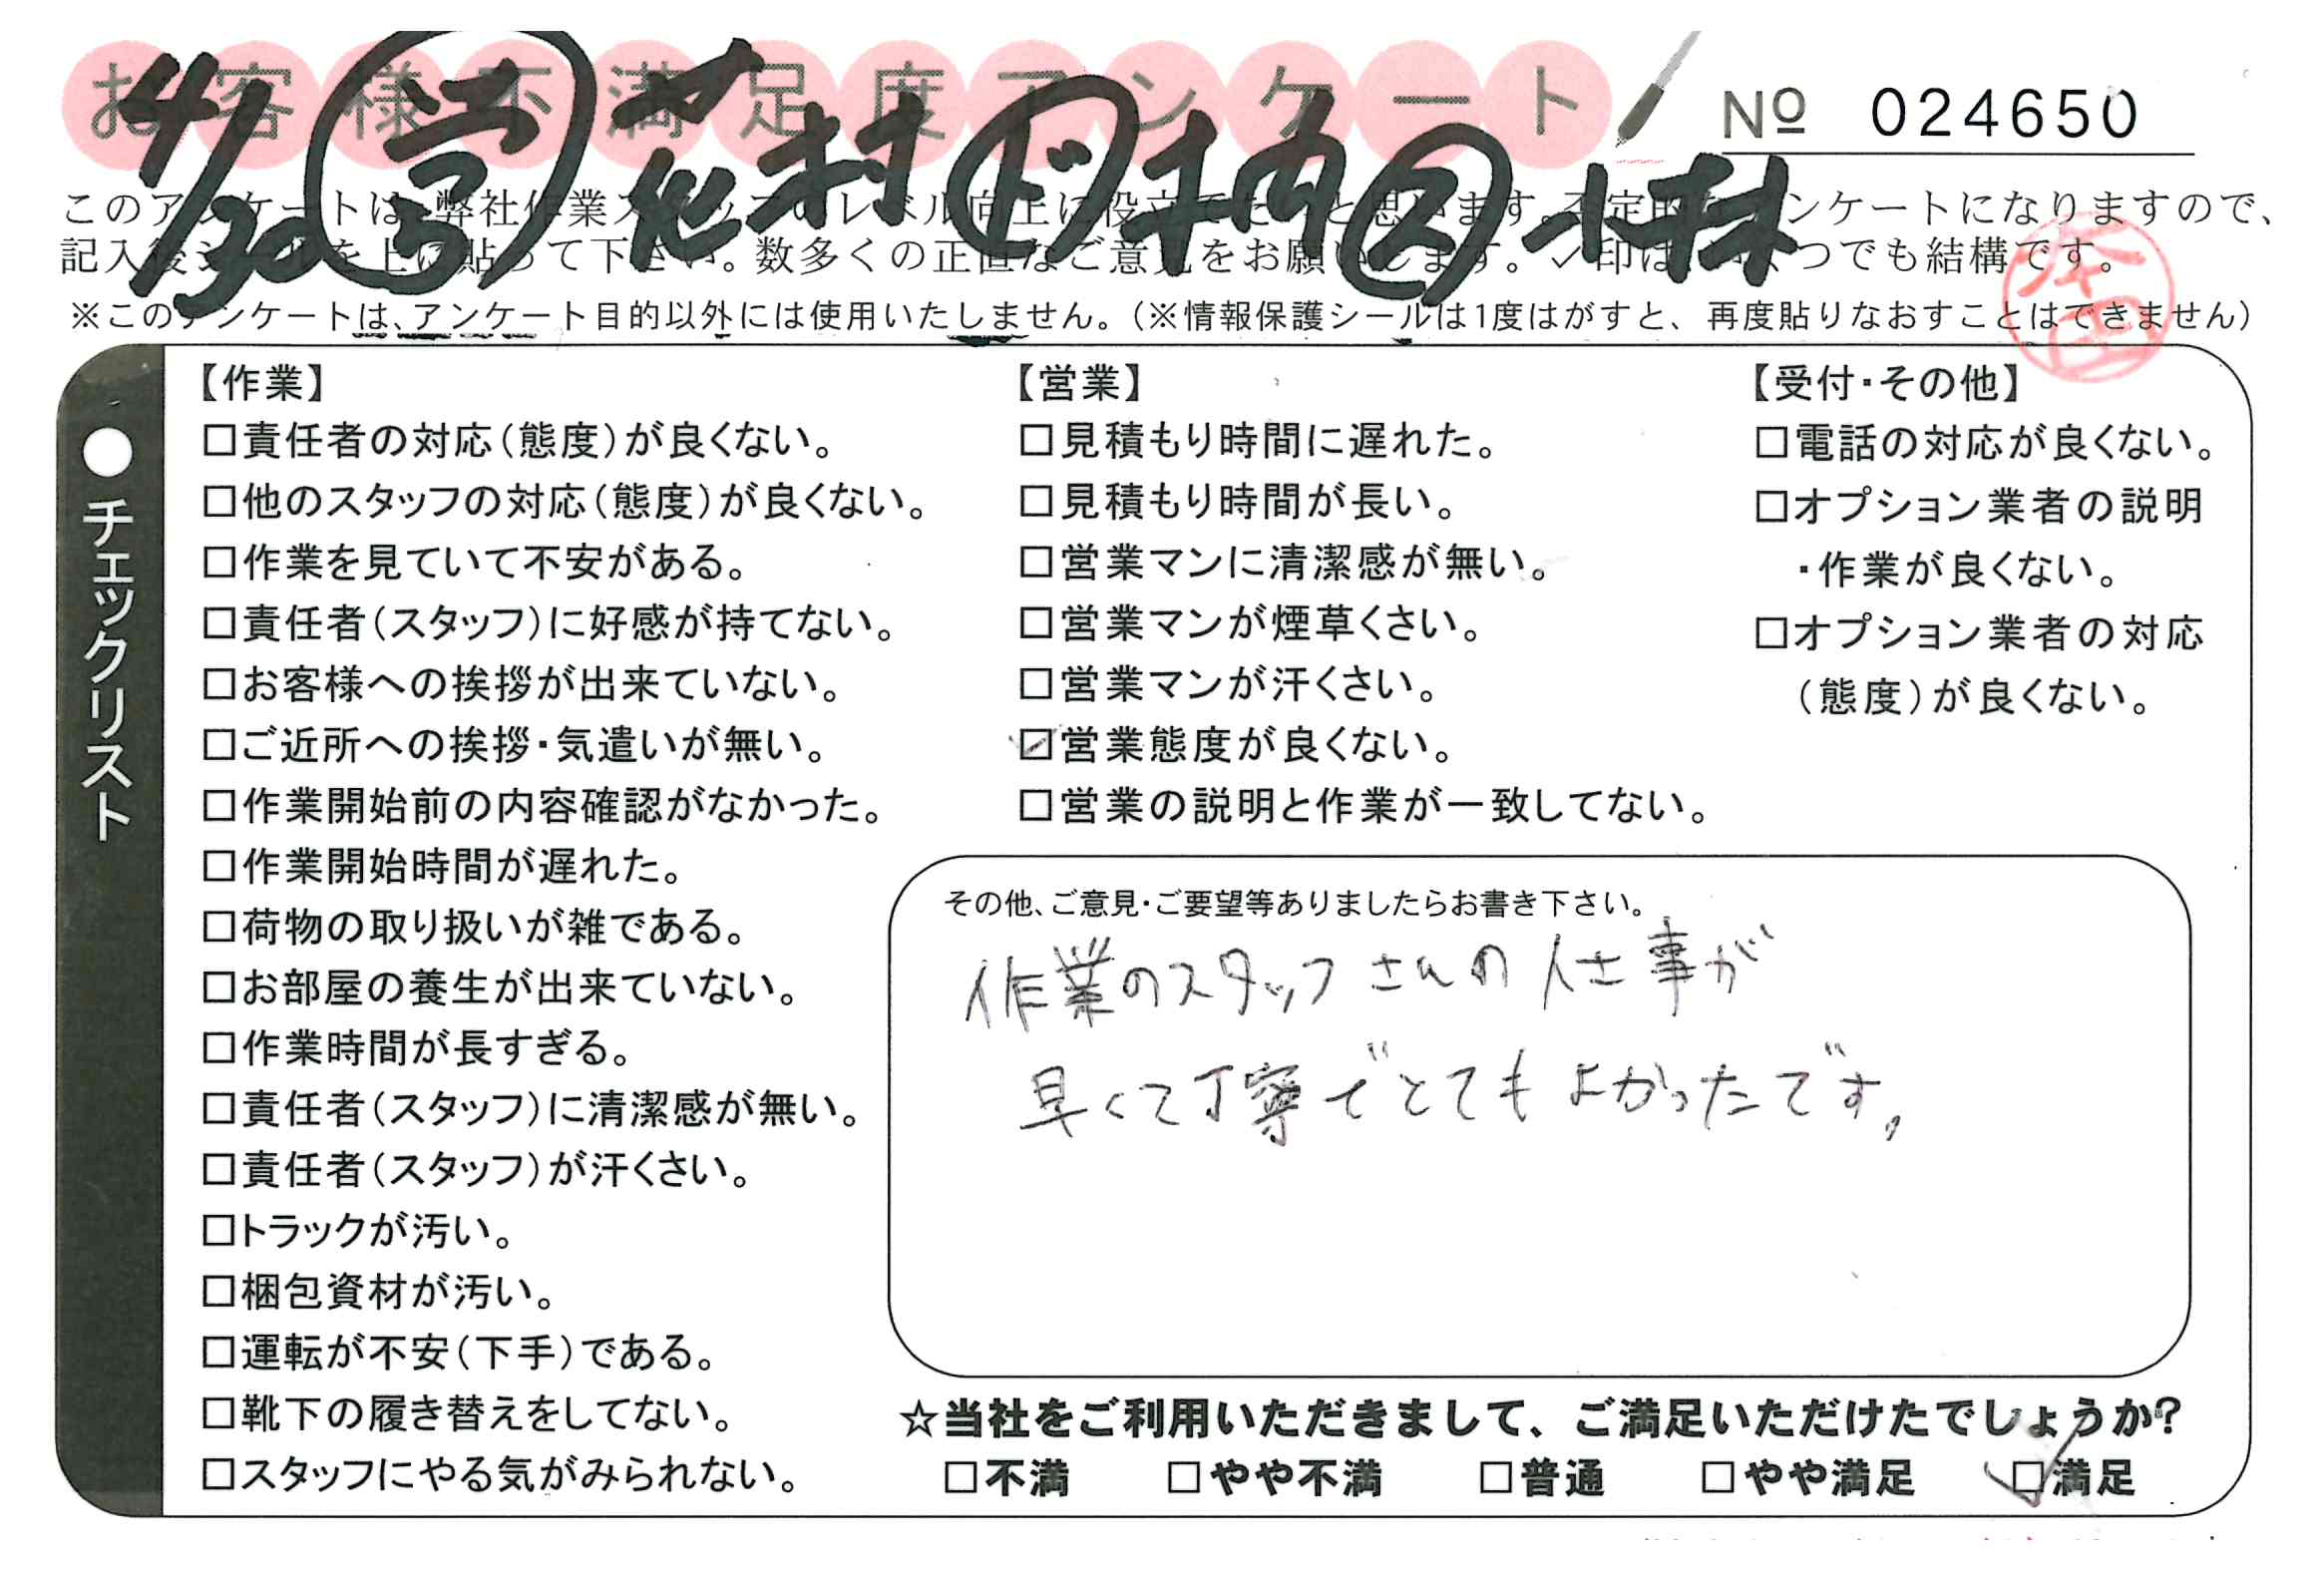 お客様不満足度アンケート
№ 024650
4/30 花村 ド 小林
このアンケートは、弊社作業スタッフのレベル向上に役立てたいと思います。不定的なアンケートになりますので、
記入後シールを上に貼って下さい。数多くの正直なご意見をお願いします。✓印は、いくつでも結構です。
※このアンケートは、アンケート目的以外には使用いたしません。(※情報保護シールは1度はがすと、再度貼りなおすことはできません)
●チェックリスト
【作業】
□責任者の対応(態度)が良くない。
□他のスタッフの対応(態度)が良くない。
□作業を見ていて不安がある。
□責任者(スタッフ)に好感が持てない。
□お客様への挨拶が出来ていない。
□ご近所への挨拶・気遣いが無い。
□作業開始前の内容確認がなかった。
□作業開始時間が遅れた。
□荷物の取り扱いが雑である。
□お部屋の養生が出来ていない。
□作業時間が長すぎる。
□責任者(スタッフ)に清潔感が無い。
□責任者(スタッフ)が汗くさい。
□トラックが汚い。
□梱包資材が汚い。
□運転が不安(下手)である。
□靴下の履き替えをしてない。
□スタッフにやる気がみられない。
【営業】
□見積もり時間に遅れた。
□見積もり時間が長い。
□営業マンに清潔感が無い。
□営業マンが煙草くさい。
□営業マンが汗くさい。
☑営業態度が良くない。
□営業の説明と作業が一致してない。
【受付・その他】
□電話の対応が良くない。
□オプション業者の説明
・作業が良くない。
□オプション業者の対応
(態度)が良くない。
その他、ご意見・ご要望等ありましたらお書き下さい。
作業のスタッフさんの仕事が
早くて丁寧でとてもよかったです。
☆当社をご利用いただきまして、ご満足いただけたでしょうか?
□不満 □やや不満 □普通 □やや満足 ☑満足